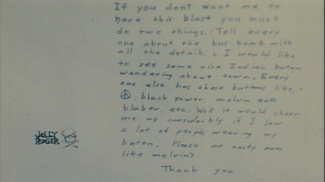 If you dont want me to
have this blast you must
do two things. Tell every
one about the bus bomb with
all the details. I would like
to see some nice Zodiac butons
wandering about town. Every
one else has these buttons like,
black power, melvin eats
blubber, etc. Well it would cheer
me up considerably if I saw
a lot of people wearing my
buton. Please no nasty ones
like melvin's
Thank you
JOLLY
ROGER